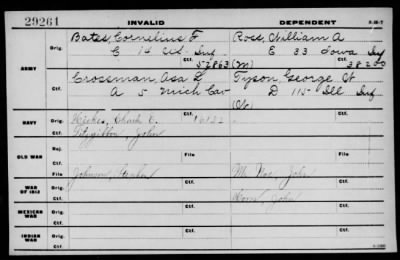 29261 INVALID DEPENDENT
Bates, Cornelius F Ross, William A
ARMY Orig. C 14 Inf E 33 Iowa Inf
Ctf. 52863 (M) Ctf. 38200
Crossman, Asa Tyson George W
A 5 Mich Cav D 115 Ill Inf
NAVY Orig. Charles E. Ctf.
Ctf. Fitzgibbon, John
OLD WAR Rej.
Ctf. File File
WAR OF 1812 Orig. Johnson, Stephen John
Ctf. John
MEXICAN WAR Orig. Ctf. Ctf.
Ctf.
INDIAN WAR Orig.
Ctf.